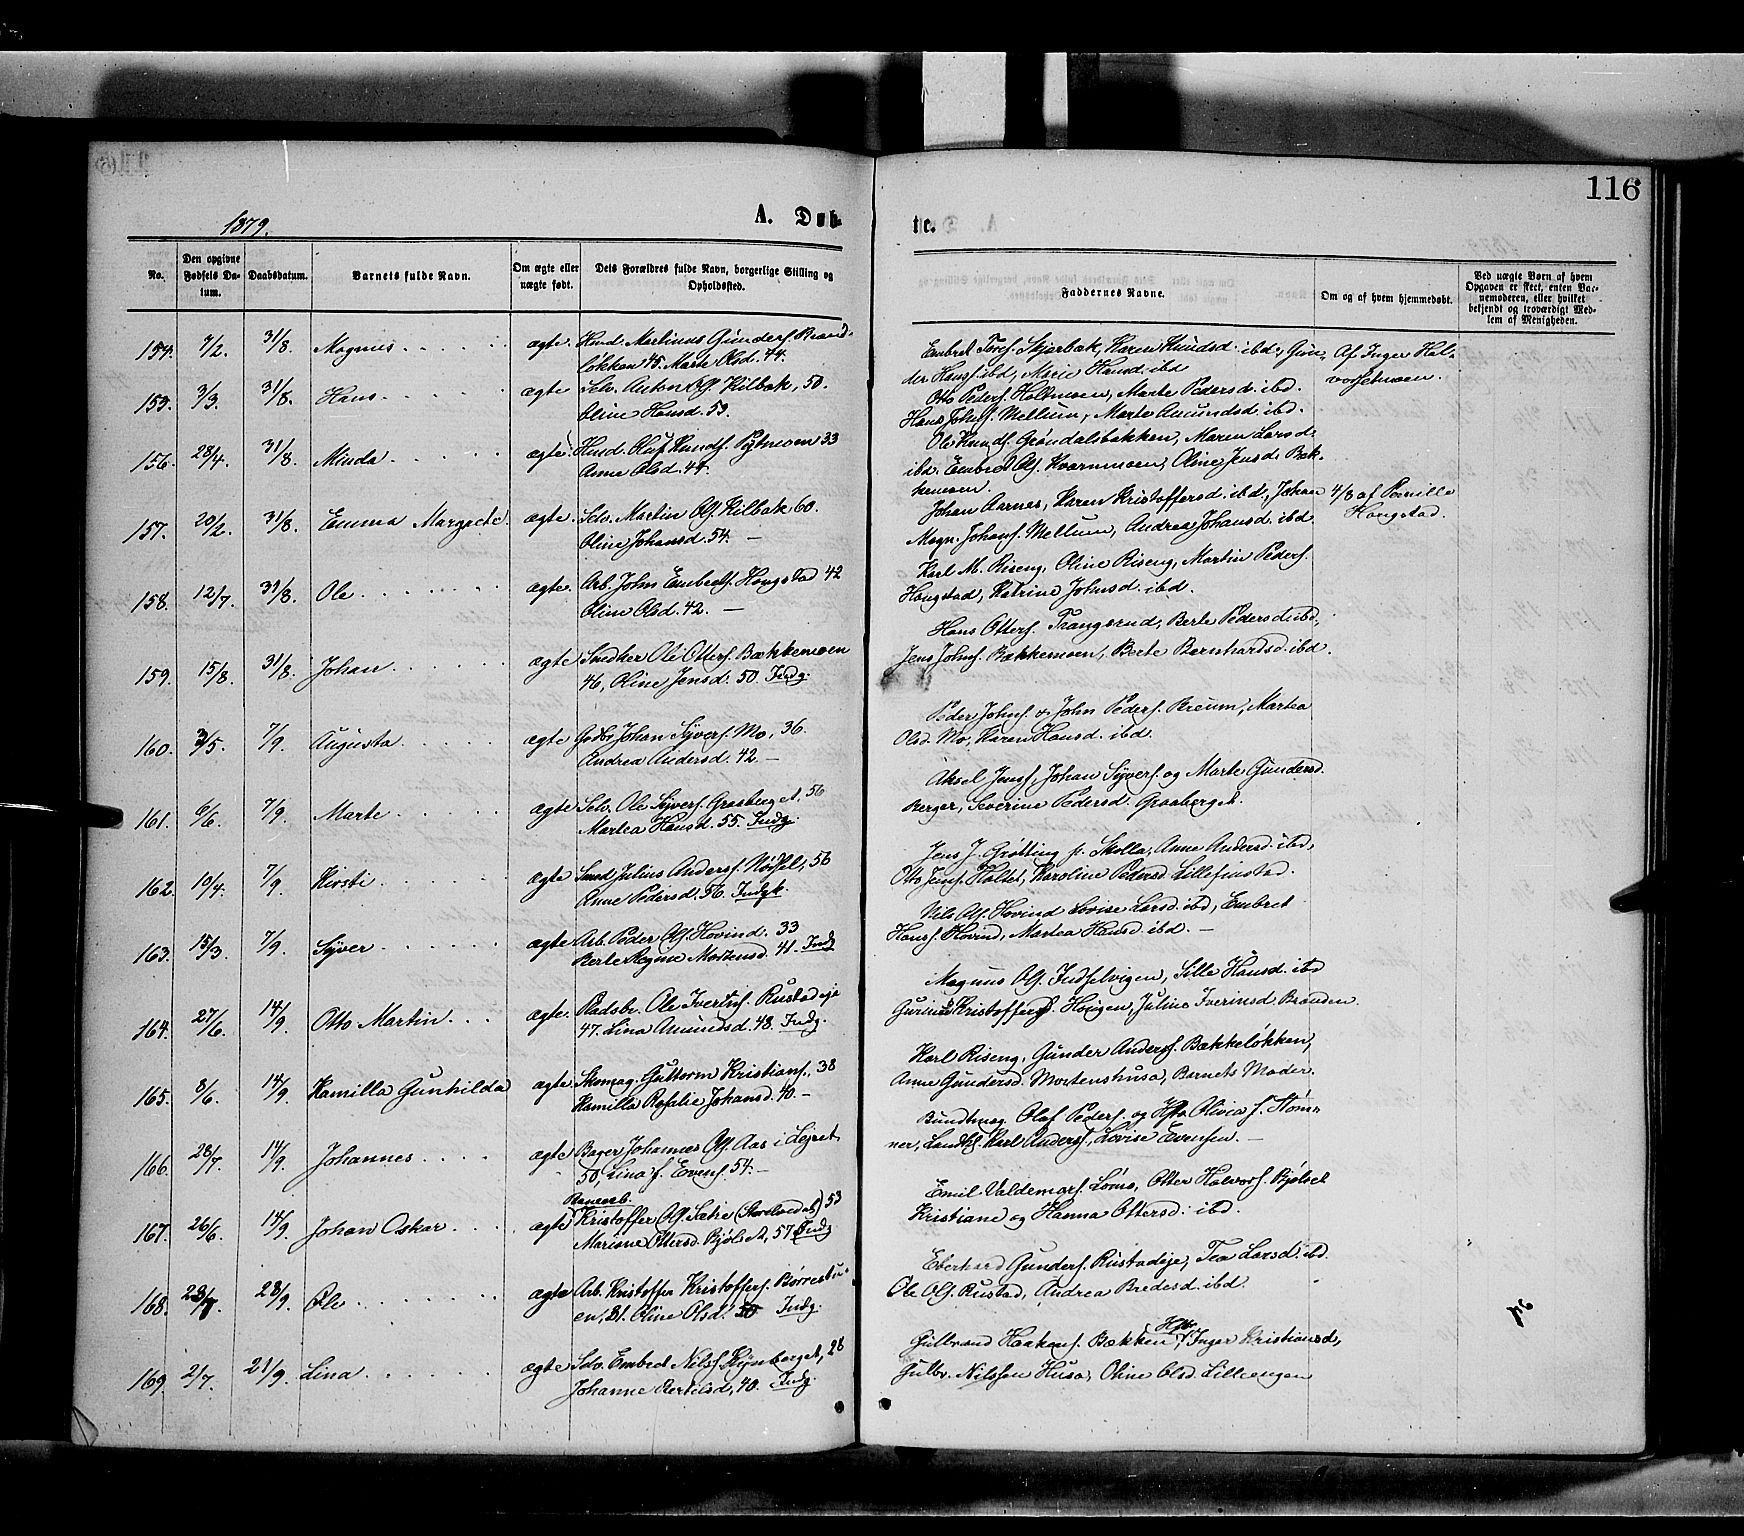 116
1879.
A. Døb-
te.
No.
Den opgivne Fødsels Datum.
Daabsdatum.
Barnets fulde Navn.
Om ægte eller uægte født.
Dets Forældres fulde Navn, borgerlige Stilling og Opholdssted.
Faddernes Navne.
Om og af hvem hjemmedøbt.
Ved uægte Børn af hvem Opgaven er skeet, enten Barnemoderen, eller hvilket bekjendt og troværdigt Medlem af Menigheden.
154. 7/2. 31/8. Magnus ægte Husd. Martinus Gunders. Brand-
løkken 45. Marte Olsd. 44.
Embret Tores. Skjærbæk, Karen Knudsd. ibd., Gun-
der Hanss. ibd, Marie Hansd. ibd
Af Inger Hal-
vorsetmoen.
155. 3/3. 31/8. Hans ægte Selv. Anton Ols. Kilbak, 50.
Oline Hansd. 53.
Otto Peders. Holtmoen, Marte Pedersd. ibd.
Hans Johns. Mellum, Marte Amundsd. ibd.
156. 28/4. 31/8. Minda ægte Husd. Oluf Knuds. Pytmoen 33
Anne Olsd. 44.
Ole Knuds. Grøndalsbakken, Maren Larsd.
ibd. Embret Ols. Kvernmoen, Oline Jensd. Bæk-
kemoen.
157. 20/2. 31/8. Emma Margrete. ægte. Selv. Martin Ols. Kilbak 60.
Oline Johansd. 54. —
Johan Aarnes, Karen Kristoffersd. ibd., Johan
Magn. Johans. Mellum, Andrea Johansd. ibd
4/8 af Pernille
Haugstad.
158. 12/7. 31/8. Ole ægte. Arb. John Embrets. Haugstad 42
Oline Olsd. 42. —
Karl M. Riseng, Oline Riseng, Martin Peders.
Haugstad, Katrine Johnsd. ibd.
159. 15/8. 31/8. Johan ægte Snedker Ole Otters. Bækkemoen
46, Oline Jensd. 50. Indg.
Hans Otters. Trangsrud, Berte Pedersd. ibd.,
Jens Johns. Bækkemoen, Berte Bernhardsd. ibd
160. 3/5. 7/9. Augusta ægte Gdbr. Johan Syvers. Mo, 36.
Andrea Andersd. 42. —
Peder Johns. & John Peders. Breum, Martea
Olsd. Mo, Karen Hansd. ibd.
161. 6/6. 7/9. Marte ægte Selv. Ole Syvers. Graaberget, 56
Martea Hansd. 55. Indg.
Aksel Jenss., Johan Syvers. og Marte Gundersd.
Berger, Severine Pedersd. Graaberget.
162. 19/4. 7/9. Kirsti ægte Smed Julius Anders. Nordset, 56
Anne Pedersd. 56. Indgk.
Jens J. Grøtting p. Skolla, Anne Andersd. ibd,
Otto Jens. Holtet, Karoline Pedersd. Lillefinstad.
163. 15/3. 7/9. Syver ægte Arb. Peder Ols. Hovind. 33
Berte Regine Mortensd. 41. Indg
Nils Ols. Hovind, Lovise Larsd. ibd, Embret
Hanss. Hovind, Martea Hansd. ibd. —
164. 27/6. 14/9. Otto Martin ægte. Pladsbr. Ole Iverins. Rustadeje
47. Lina Amundsd. 48. Indg.
Magnus Ols. Indselvigen, Sille Hansd. ibd
Kristoffers. Haugen, Juline Iverinsd Branden.
165. 8/6. 14/9. Kamilla Gunhilda ægte. Skomag. Guttorm Kristians., 38
Kamilla Rosalie Johansd. 40. —
Karl Riseng, Gunder Anders. Bækkeløkken,
Anne Gundersd. Mortenshusa, Barnets Moder.
166. 28/7. 14/9. Johannes ægte Bager Johannes Ols. Aas i Lejret,
50, Lina f. Evens. 54. —
Bundtmag. Olaf Peders. og Hstr. Olivia f. Støm-
ner, Landhl. Karl Anders., Lovise Evensen. —
167. 26/6. 14/9. Johan Oskar ægte Banearb. Kristoffer Ols. Sætre (Storelvedal) 53
Marisne Ottersd. Bjølset, 57. Indg
Emil Valdemars. Lørns, Otter Halvors. Bjølset
Kristiane og Hanna Ottersd. ibd.
168. 23/7. 28/9. Ole ægte Arb. Kristoffer Kristoffers. Børrestu-
en, 31. Oline Olsd. 50 Indg.
Eberhard Gunders. Rustadeje, Tea Larsd. ibd.
Ole Ols. Rustad, Andrea Bredesd. ibd.
169. 2/7. 21/9. Lina ægte Selv. Embret Nilss. Rynberget, 28
Johanne Bertilsd, 40. Indg.
Gulbrand Haakens. Bækken, Hstr. Inger Kristiansd,
Gulbr. Nilssen Husa, Oline Olsd. Lillengen